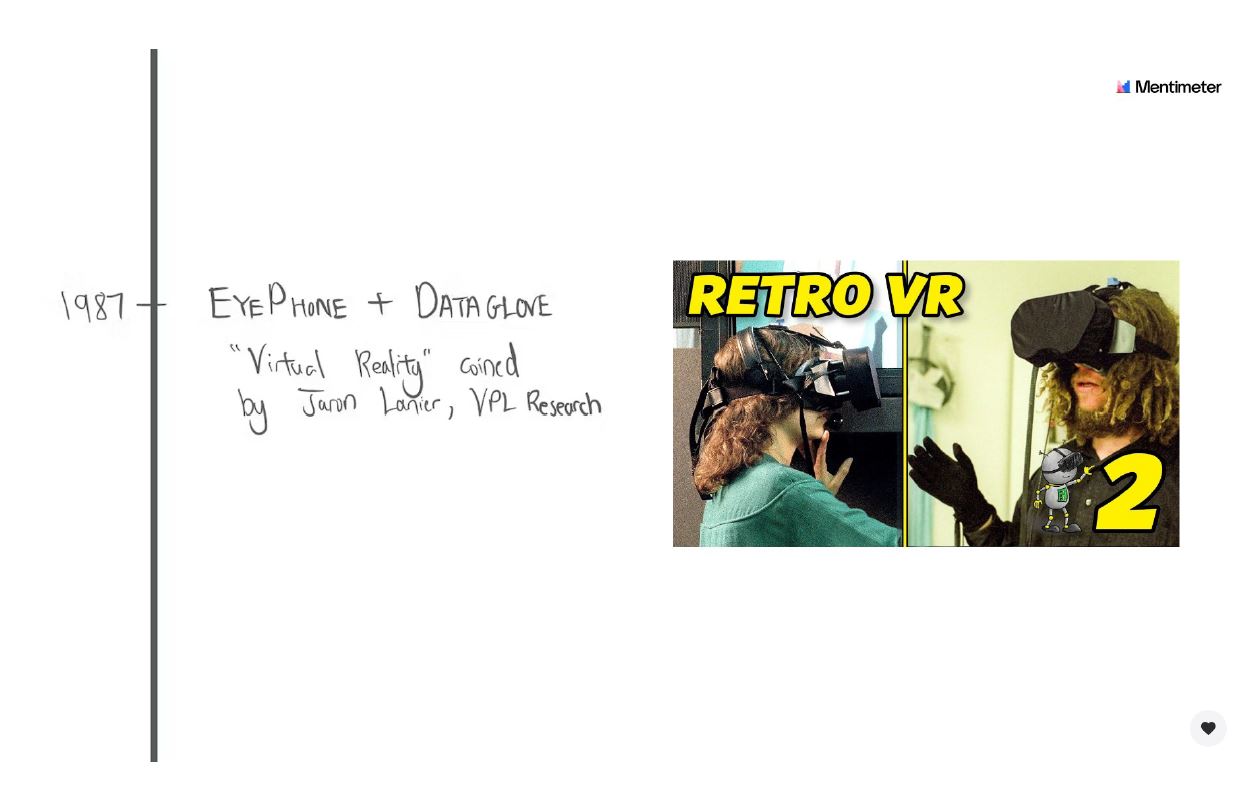 Mentimeter
1987
EYEPHONE + DATAGLOVE
"Virtual Reality" coined
by Jaron Lanier, VPL Research
RETRO VR
2